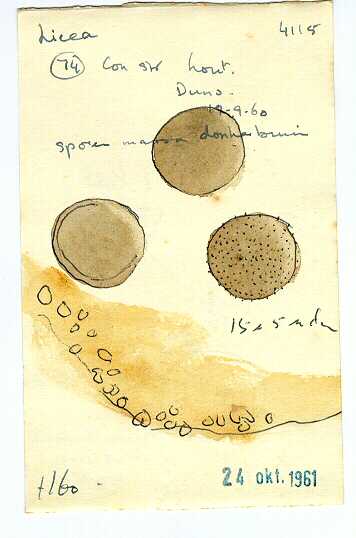 Licea 4115
74 Con str hout.
Duno.
12-9-60
sporen massa donkerbruin
+160
24 okt. 1961